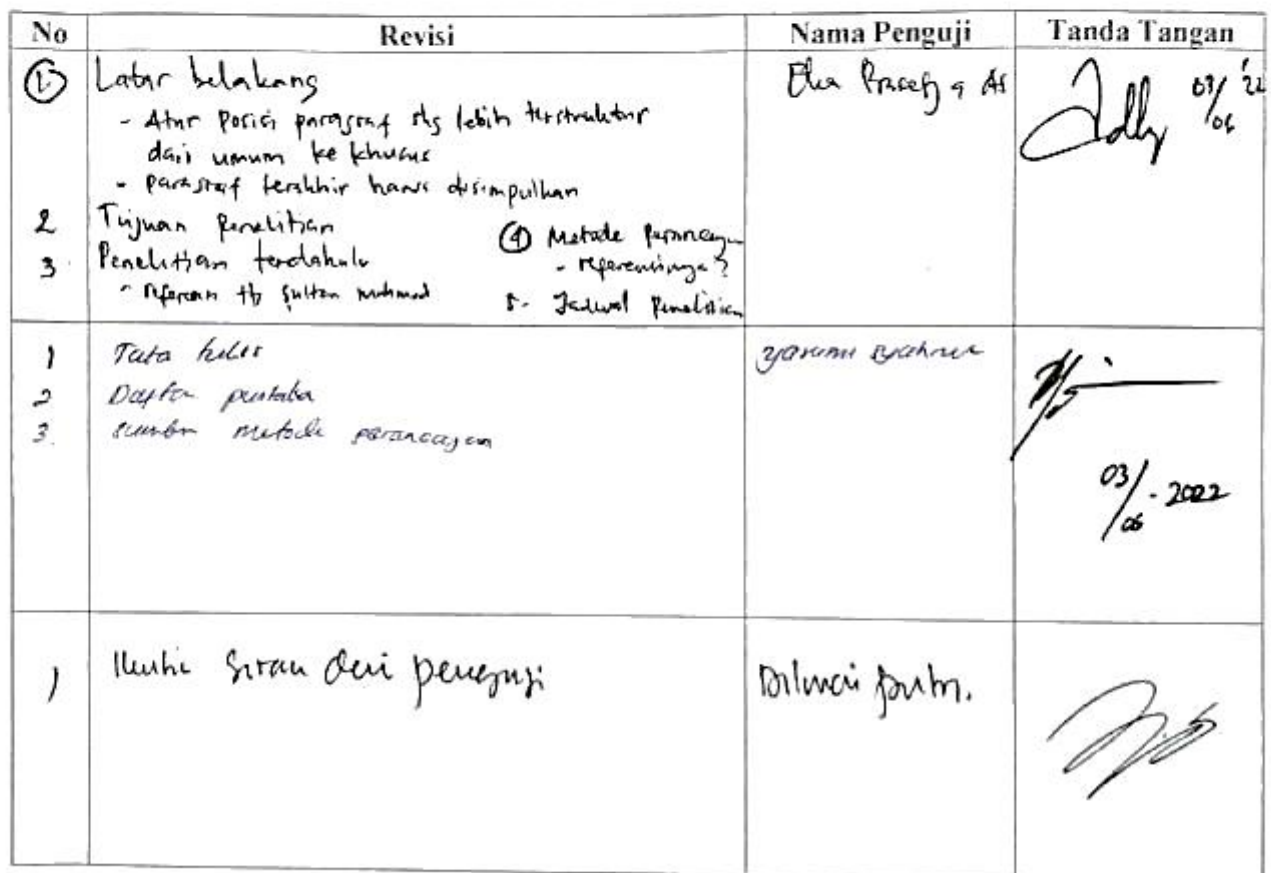 No Revisi Nama Penguji Tanda Tangan
1. Latar belakang
- Atur Posisi paragraf shg lebih terstruktur
dari umum ke khusus
- paragraf terakhir harus disimpulkan
2 Tujuan Penelitian
3 Penelitian terdahulu
- referensi ttg Sultan mahmud
4 Metode Perancangan
- referensinya?
5. Jadwal Penelitian
Eka Prasetya
03/06 '22
1 Tata tulis
2 Daftar pustaka
3. Sumber metode perancangan
03/06 - 2022
1 Ikuti saran dari penguji